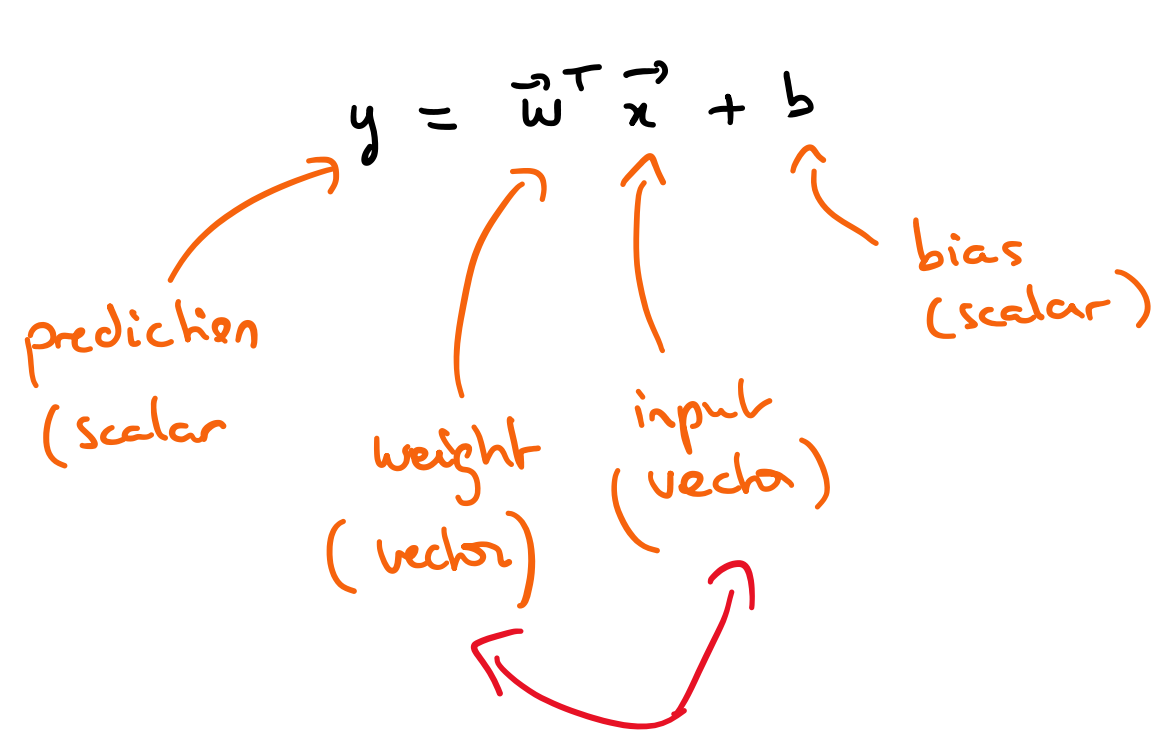 y = w⃗ᵀ x⃗ + b
prediction
(scalar
weight
(vector)
input
(vector)
bias
(scalar)